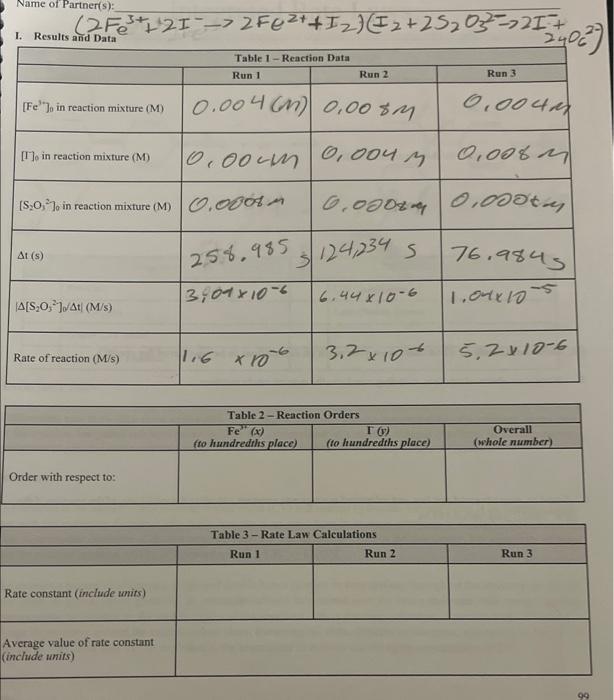 Name of Partner(s):
(2Fe³⁺+2I⁻→2Fe²⁺+I₂)(I₂+2S₂O₃²⁻→2I⁻+
I. Results and Data
Table 1 – Reaction Data
Run 1 Run 2 Run 3
[Fe³⁺]₀ in reaction mixture (M) 0.004 (M) 0,008M 0,004M
[I⁻]₀ in reaction mixture (M) 0,004M 0,004 M 0,008 M
[S₂O₃²⁻]₀ in reaction mixture (M)
Δt (s) 258.985 s 124,234 s 76.984s
|Δ[S₂O₃²⁻]₀/Δt| (M/s) 6.44x10⁻⁶ 1.04x10⁻⁵
Rate of reaction (M/s) 1.6 x 10⁻⁶ 3.2x10⁻⁶ 5.2x10⁻⁶
Table 2 – Reaction Orders
Fe³⁺ (x) I⁻ (y) Overall
(to hundredths place) (to hundredths place) (whole number)
Order with respect to:
Table 3 – Rate Law Calculations
Run 1 Run 2 Run 3
Rate constant (include units)
Average value of rate constant
(include units)
99